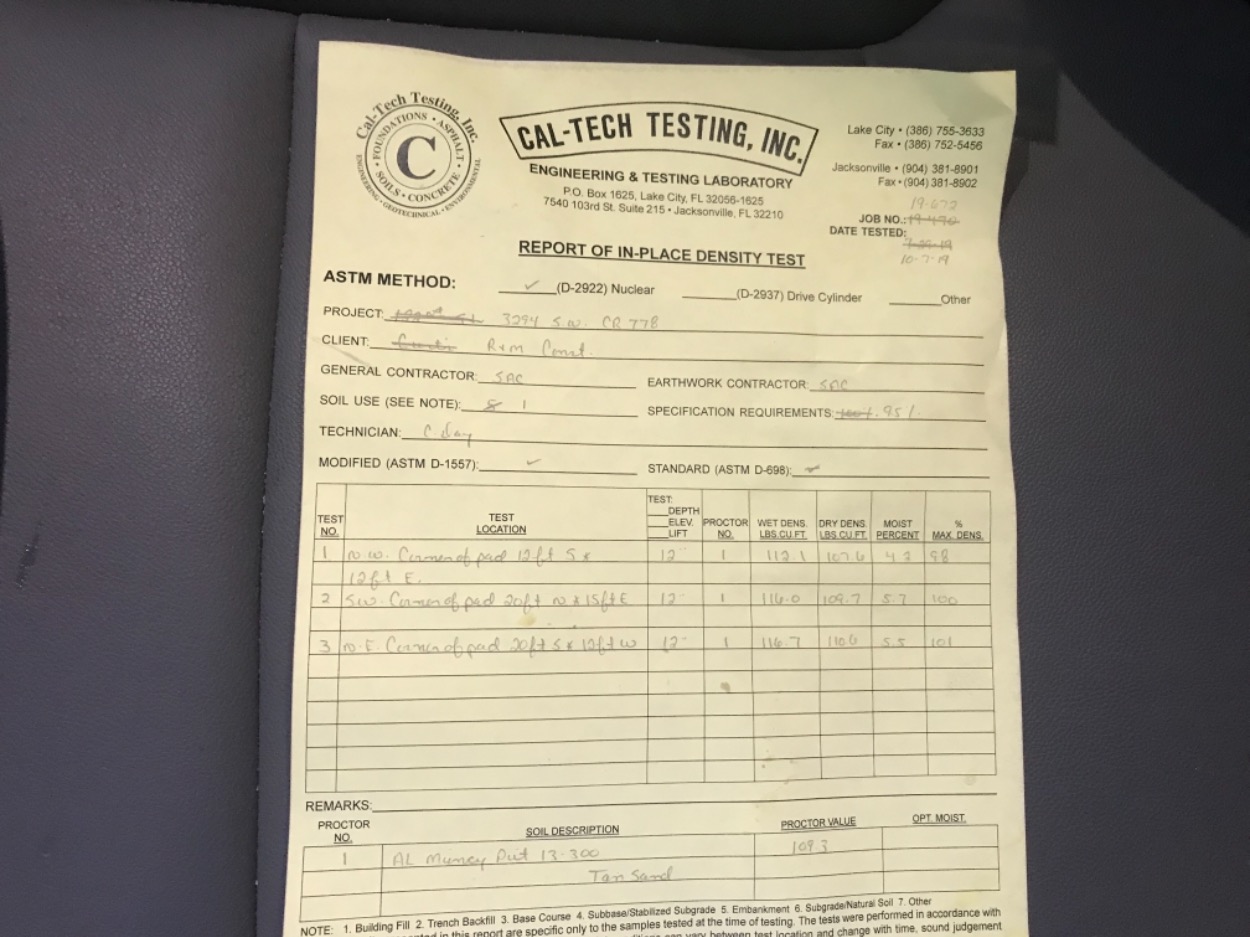 Cal-Tech Testing, Inc.
• FOUNDATIONS • ASPHALT •
SOILS • CONCRETE
ENGINEERING • GEOTECHNICAL • ENVIRONMENTAL
C
CAL-TECH TESTING, INC.
ENGINEERING & TESTING LABORATORY
P.O. Box 1625, Lake City, FL 32056-1625
7540 103rd St. Suite 215 • Jacksonville, FL 32210
Lake City • (386) 755-3633
Fax • (386) 752-5456
Jacksonville • (904) 381-8901
Fax • (904) 381-8902
19-672
JOB NO.: 19-470
DATE TESTED:
10-7-19
REPORT OF IN-PLACE DENSITY TEST
ASTM METHOD: ✓ (D-2922) Nuclear (D-2937) Drive Cylinder Other
PROJECT: 3294 S.W. CR 778
CLIENT: Curtis R+m Const.
GENERAL CONTRACTOR: SAC EARTHWORK CONTRACTOR: SAC
SOIL USE (SEE NOTE): 8 1 SPECIFICATION REQUIREMENTS: 100%. 95%.
TECHNICIAN: C. Day
MODIFIED (ASTM D-1557): ✓ STANDARD (ASTM D-698): ✓
TEST NO. TEST LOCATION TEST: DEPTH ELEV. LIFT PROCTOR NO. WET DENS. LBS.CU.FT. DRY DENS. LBS.CU.FT. MOIST PERCENT % MAX. DENS.
1 N.W. Corner of pad 12ft S & 12" 1 112.1 107.6 4.2 98
12ft E.
2 S.W. Corner of pad 20ft N & 15ft E 12" 1 116.0 109.7 5.7 100
3 N.E. Corner of pad 20ft S & 12ft W 12" 1 116.7 110.6 5.5 101
REMARKS:
PROCTOR NO. SOIL DESCRIPTION PROCTOR VALUE OPT. MOIST.
1 AL Muncy Pit 13-300 109.3
Tan Sand
NOTE: 1. Building Fill 2. Trench Backfill 3. Base Course 4. Subbase/Stabilized Subgrade 5. Embankment 6. Subgrade/Natural Soil 7. Other
in this report are specific only to the samples tested at the time of testing. The tests were performed in accordance with
can vary between test location and change with time, sound judgement